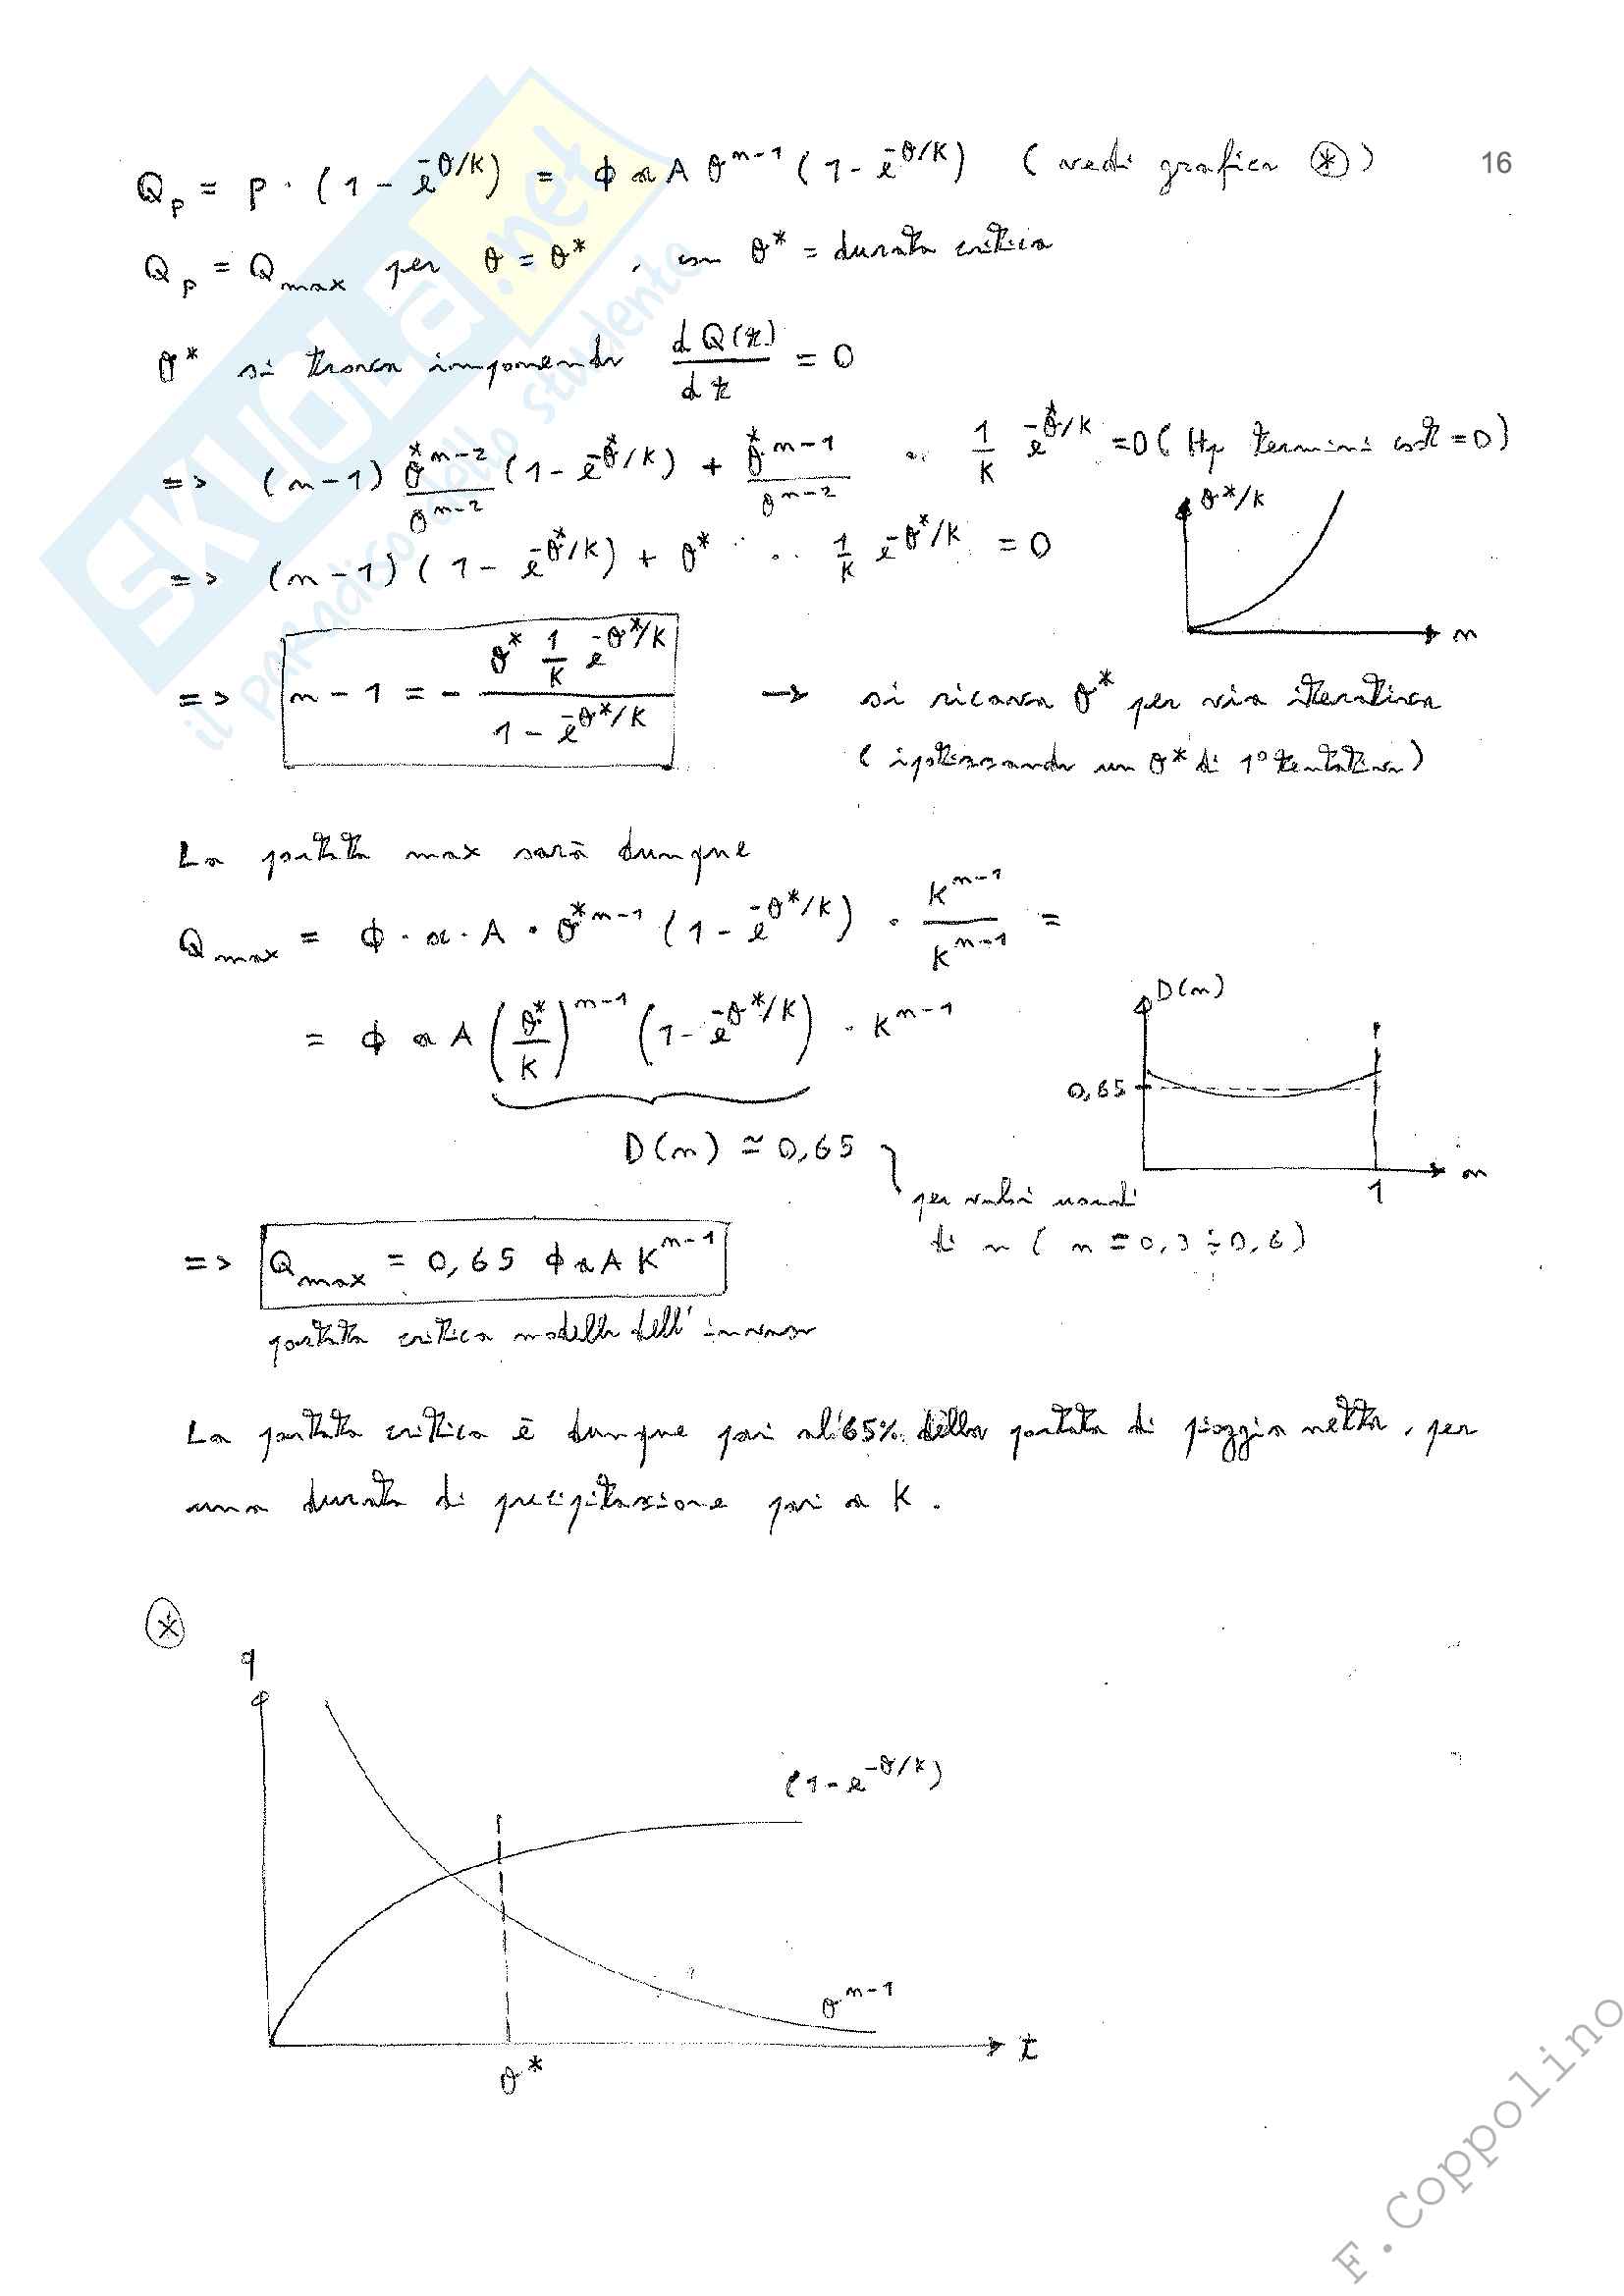 16
Q_p = p · (1 - e^{-θ/K}) = ϕ a A θ^{n-1} (1 - e^{-θ/K}) (vedi grafico ⊛)
Q_p = Q_max per θ = θ* , con θ* = durata critica
θ* si trova imponendo dQ(t)/dt = 0
=> (n-1) θ*^{n-2}/θ^{n-2} (1 - e^{-θ*/K}) + θ*^{n-1}/θ^{n-2} · 1/K e^{-θ*/K} = 0 (Hp termini cost = 0)
=> (n-1) (1 - e^{-θ*/K}) + θ* · 1/K e^{-θ*/K} = 0
θ*/K
n
=> n - 1 = - (θ* 1/K e^{-θ*/K}) / (1 - e^{-θ*/K}) → si ricava θ* per via iterativa
(ipotizzando un θ* di 1° tentativo)
La portata max sarà dunque
Q_max = ϕ · a · A · θ*^{n-1} (1 - e^{-θ*/K}) · K^{n-1}/K^{n-1} =
= ϕ a A (θ*/K)^{n-1} (1 - e^{-θ*/K}) · K^{n-1}
D(n)
0,65
n
1
D(n) ≃ 0,65
per valori usuali
di n ( n = 0,3 ÷ 0,6)
=> Q_max = 0,65 ϕ a A K^{n-1}
portata critica modello dell' invaso
La portata critica è dunque pari al 65% della portata di pioggia netta, per
una durata di precipitazione pari a K.
⊛
q
(1 - e^{-θ/K})
θ^{n-1}
t
θ*
SKUOLA.net
il paradiso dello studente
F. Coppolino